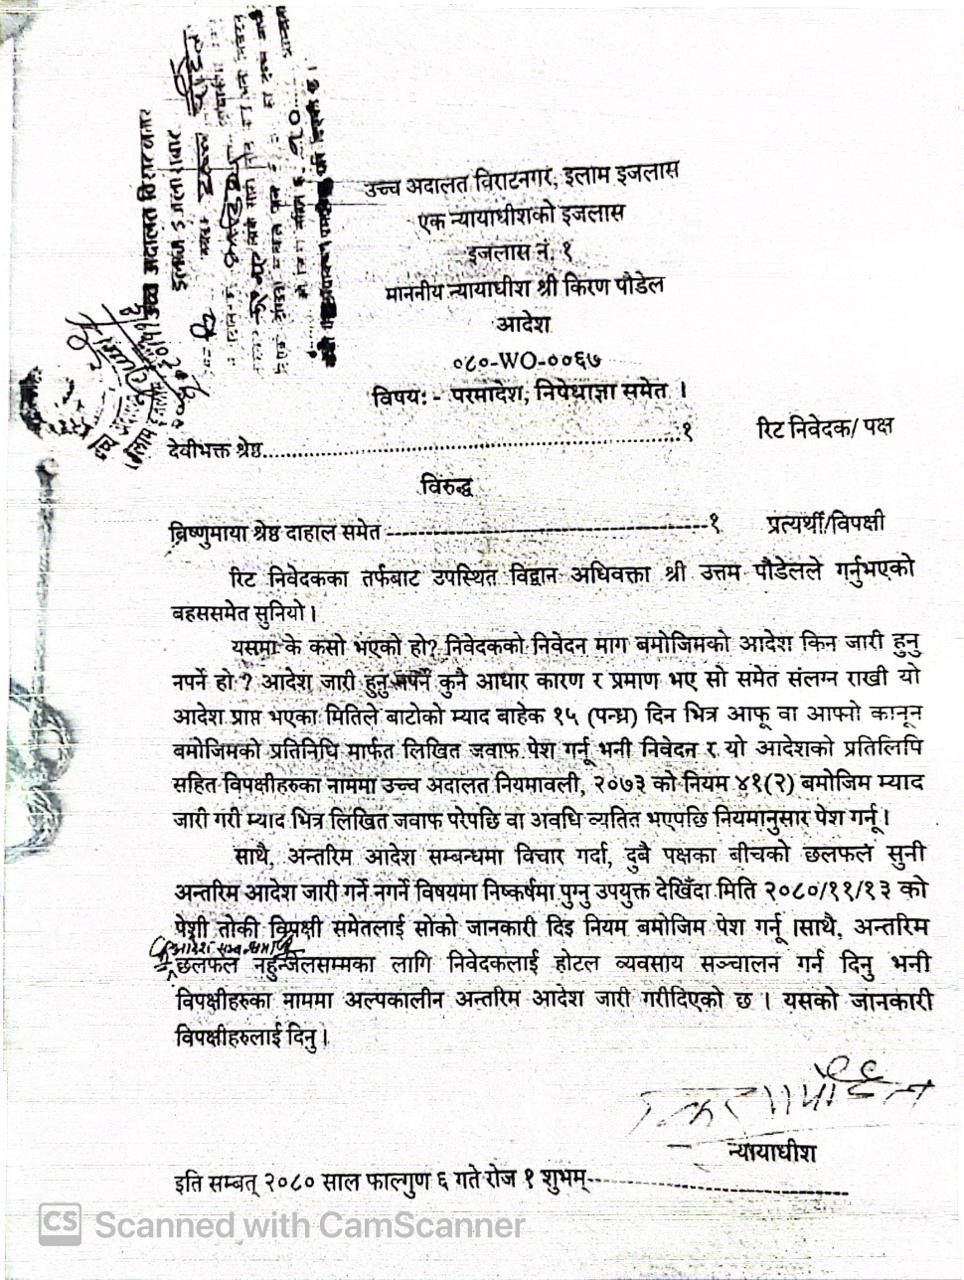 उच्च अदालत विराटनगर, इलाम इजलास
एक न्यायाधीशको इजलास
इजलास नं. १
माननीय न्यायाधीश श्री किरण पौडेल
आदेश
०८०-WO-००६७
विषय: - परमादेश, निषेधाज्ञा समेत ।
देवीभक्त श्रेष्ठ..........................................................१ रिट निवेदक/ पक्ष
विरुद्ध
विष्णुमाया श्रेष्ठ दाहाल समेत ------------------------------------१ प्रत्यर्थी/विपक्षी
रिट निवेदकका तर्फबाट उपस्थित विद्वान अधिवक्ता श्री उत्तम पौडेलले गर्नुभएको
बहससमेत सुनियो ।
यसमा के कसो भएको हो? निवेदकको निवेदन माग बमोजिमको आदेश किन जारी हुनु
नपर्ने हो ? आदेश जारी हुनु नपर्ने कुनै आधार कारण र प्रमाण भए सो समेत संलग्न राखी यो
आदेश प्राप्त भएका मितिले बाटोको म्याद बाहेक १५ (पन्ध्र) दिन भित्र आफू वा आफ्नो कानून
बमोजिमको प्रतिनिधि मार्फत लिखित जवाफ पेश गर्नू भनी निवेदन र यो आदेशको प्रतिलिपि
सहित विपक्षीहरुका नाममा उच्च अदालत नियमावली, २०७३ को नियम ४१(२) बमोजिम म्याद
जारी गरी म्याद भित्र लिखित जवाफ परेपछि वा अवधि व्यतित भएपछि नियमानुसार पेश गर्नू ।
साथै, अन्तरिम आदेश सम्बन्धमा विचार गर्दा, दुबै पक्षका बीचको छलफल सुनी
अन्तरिम आदेश जारी गर्ने नगर्ने विषयमा निष्कर्षमा पुग्नु उपयुक्त देखिँदा मिति २०८०/११/१३ को
पेशी तोकी विपक्षी समेतलाई सोको जानकारी दिइ नियम बमोजिम पेश गर्नू ।साथै, अन्तरिम
आदेश सम्बन्धमा
छलफल नहुन्जेलसम्मका लागि निवेदकलाई होटल व्यवसाय सञ्चालन गर्न दिनु भनी
विपक्षीहरुका नाममा अल्पकालीन अन्तरिम आदेश जारी गरीदिएको छ । यसको जानकारी
विपक्षीहरुलाई दिनु ।
न्यायाधीश
इति सम्बत् २०८० साल फाल्गुण ६ गते रोज १ शुभम्------------------------------
CS Scanned with CamScanner